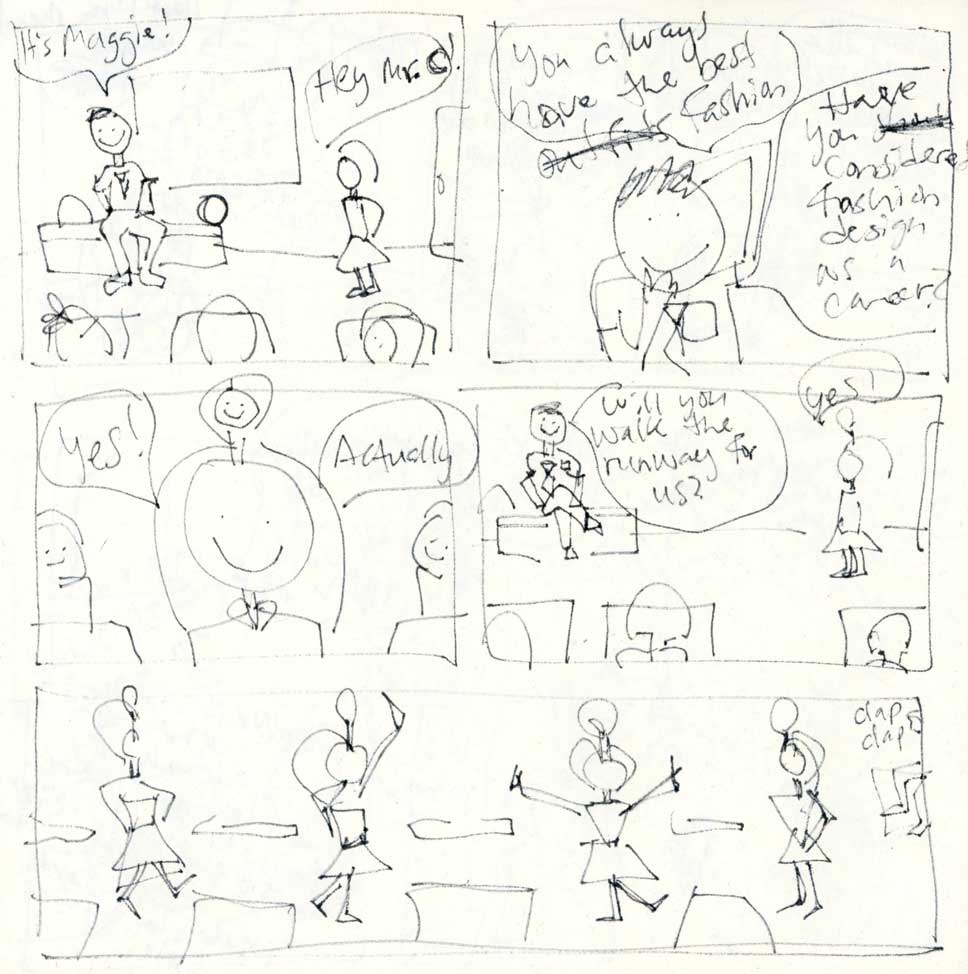 It's Maggie!
Hey Mr. C!
You always
have the best
fashion
Have
you
considered
fashion
design
as a
career?
Yes!
Actually
Will you
walk the
runway for
us?
yes!
clap
clap!